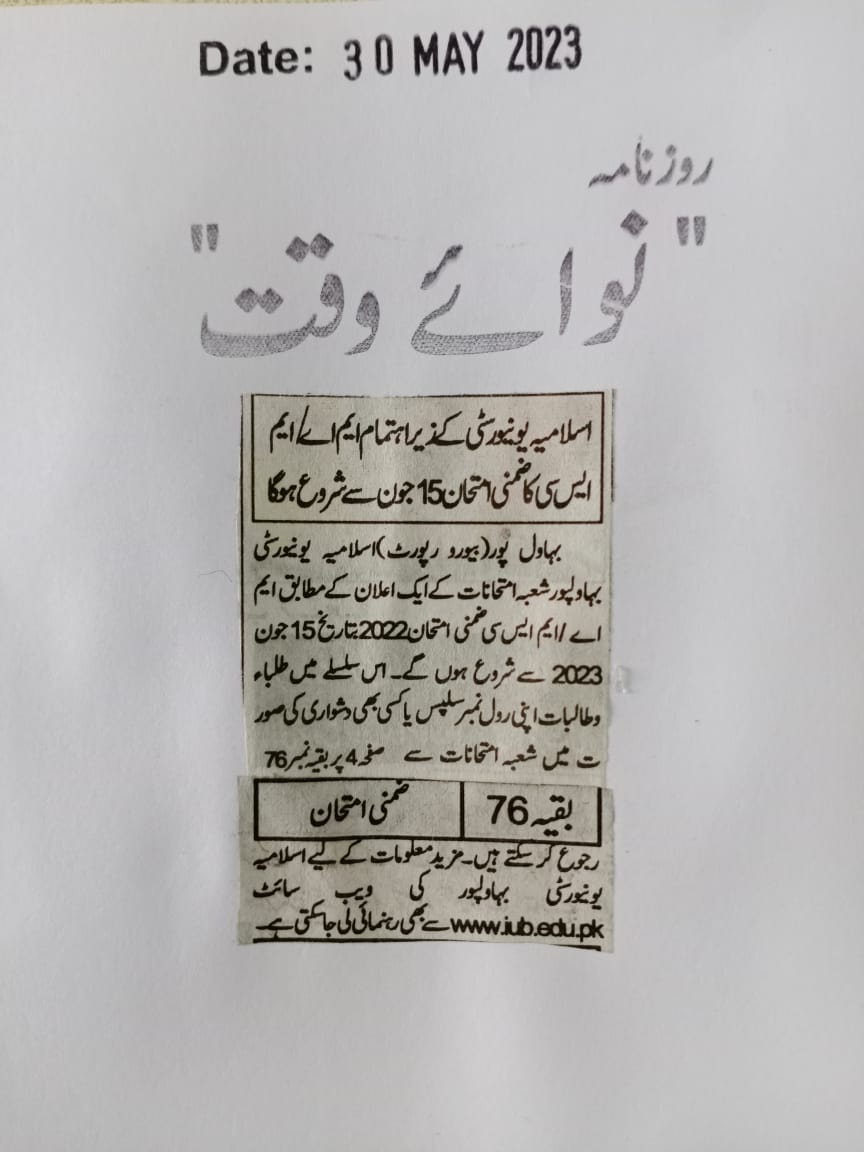 Date: 30 MAY 2023
روزنامہ
"نوائے وقت"
اسلامیہ یونیورسٹی کے ذیر اہتمام ایم اے/ ایم
ایس سی کا ضمنی امتحان 15 جون سے شروع ہوگا
بہاول پور (بیورو رپورٹ) اسلامیہ یونیورسٹی
بہاولپور شعبہ امتحانات کے ایک اعلان کے مطابق ایم
اے / ایم ایس سی ضمنی امتحان 2022 بتاریخ 15 جون
2023 سے شروع ہوں گے۔ اس سلسلے میں طلباء
وطالبات اپنی رول نمبر سلپس یا کسی بھی دشواری کی صور
ت میں شعبہ امتحانات سے صفحہ 4 پر بقیہ نمبر 76
بقیہ 76 ضمنی امتحان
رجوع کر سکتے ہیں۔ مزید معلومات کے لیے اسلامیہ
یونیورسٹی بہاولپور کی ویب سائٹ
www.iub.edu.pk سے بھی رہنمائی لی جاسکتی ہے۔